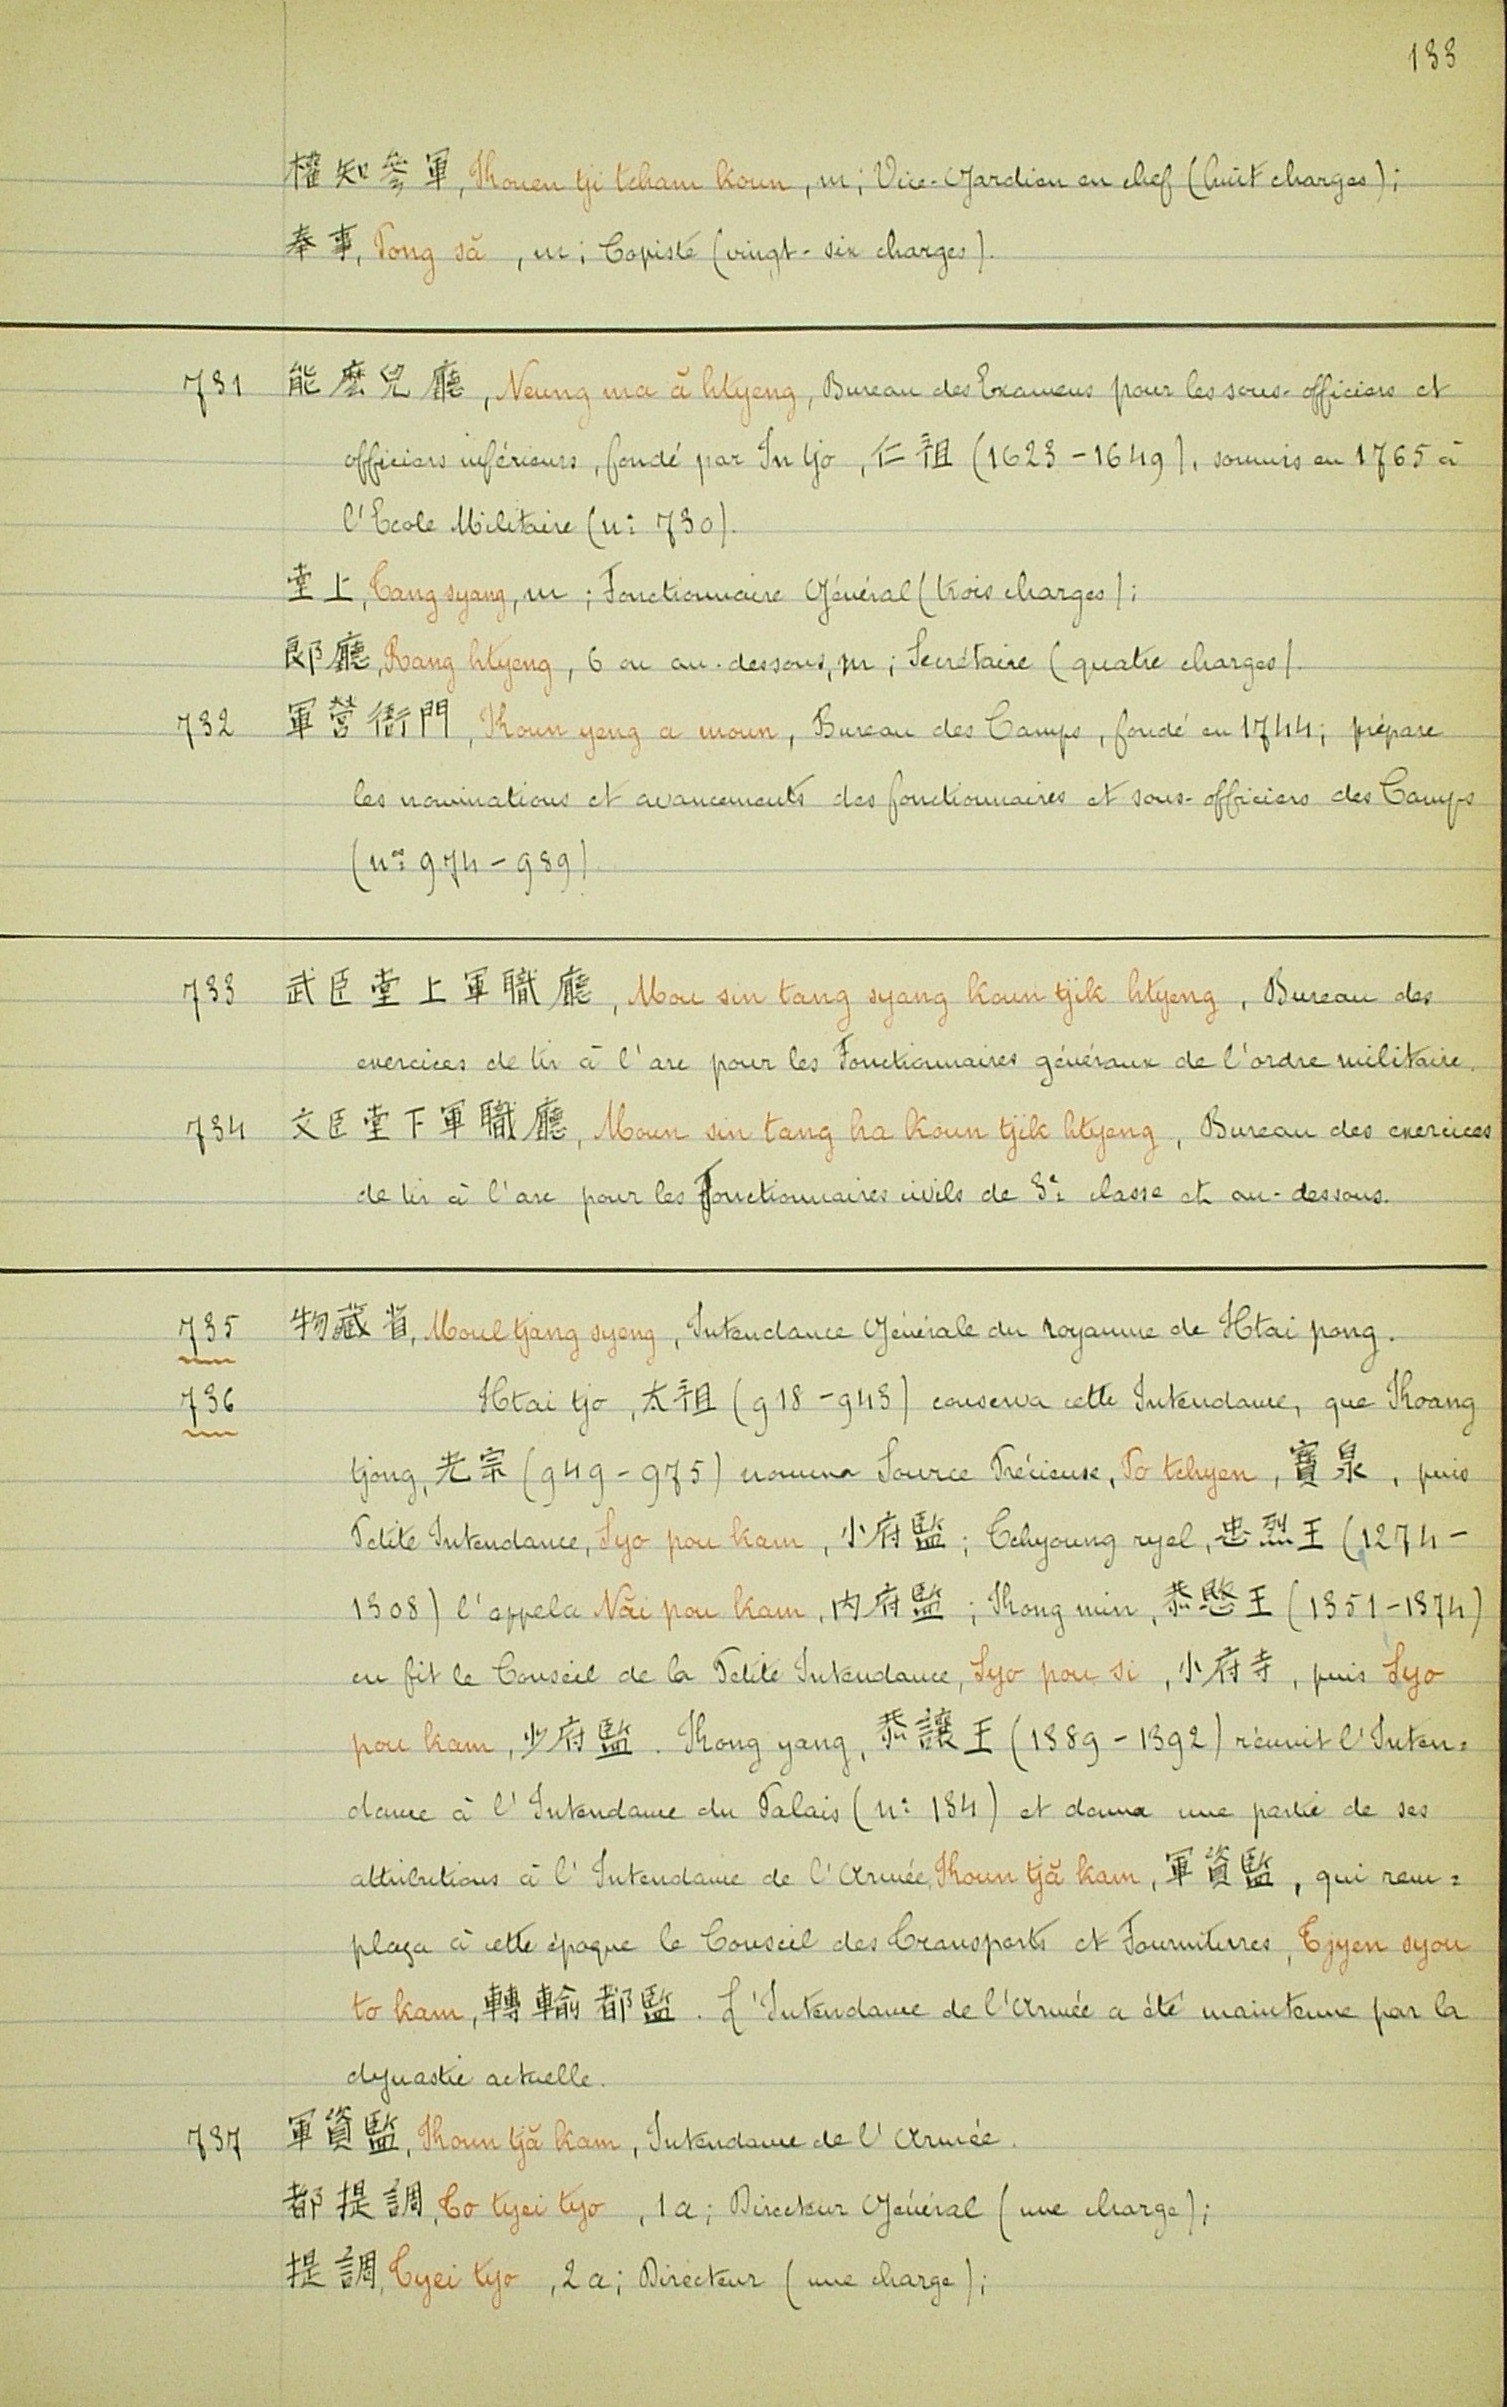 133
權知參軍, Kouen tji tcham koun, m; Vice-Gardien en chef (huit charges);
奉事, Pong să, m; Copiste (vingt-six charges).
731 能麽兒廳, Neung ma ă htyeng, Bureau des Examens pour les sous-officiers et
officiers inférieurs, fondé par In tjo, 仁祖 (1623-1649), soumis en 1765 à
l'Ecole Militaire (nº 730).
堂上, Tang syang, m; Fonctionnaire Général (trois charges);
郎廳, Rang htyeng, 6 ou au-dessous, m; Secrétaire (quatre charges).
732 軍營衙門, Koun yeng a moun, Bureau des Camps, fondé en 1744; prépare
les nominations et avancements des fonctionnaires et sous-officiers des Camps
(nos 974-989).
733 武臣堂上軍職廳, Mou sin tang syang koun tjik htyeng, Bureau des
exercices de tir à l'arc pour les Fonctionnaires généraux de l'ordre militaire.
734 文臣堂下軍職廳, Moun sin tang ha koun tjik htyeng, Bureau des exercices
de tir à l'arc pour les Fonctionnaires civils de 3e classe et au-dessous.
735 物藏省, Moul tjang syeng, Intendance Générale du royaume de Htai pong.
736 Htai tjo,太祖 (918-943) conserva cette Intendance, que Koang
tjong, 光宗 (949-975) nomma Source Précieuse, Po tchyen, 寶泉, puis
Petite Intendance, Syo pou kam, 小府監; Tchyoung ryel, 忠烈王 (1274-
1308) l'appela Năi pou kam, 内府監; Kong min, 恭愍王 (1351-1374)
en fit le Conseil de la Petite Intendance, Syo pou si, 小府寺, puis Syo
pou kam, 少府監. Kong yang, 恭讓王 (1389-1392) réunit l'Inten=
dance à l'Intendance du Palais (nº 134) et donna une partie de ses
attributions à l'Intendance de l'Armée, Koun tjă kam, 軍資監, qui rem=
plaça à cette époque le Conseil des Transports et Fournitures, Tjyen syou
to kam, 轉輸都監. L'Intendance de l'Armée a été maintenue par la
dynastie actuelle.
737 軍資監, Koun tjă kam, Intendance de l'Armée.
都提調, To tyei tyo, 1a; Directeur Général (une charge);
提調, Tyei tyo, 2a; Directeur (une charge);